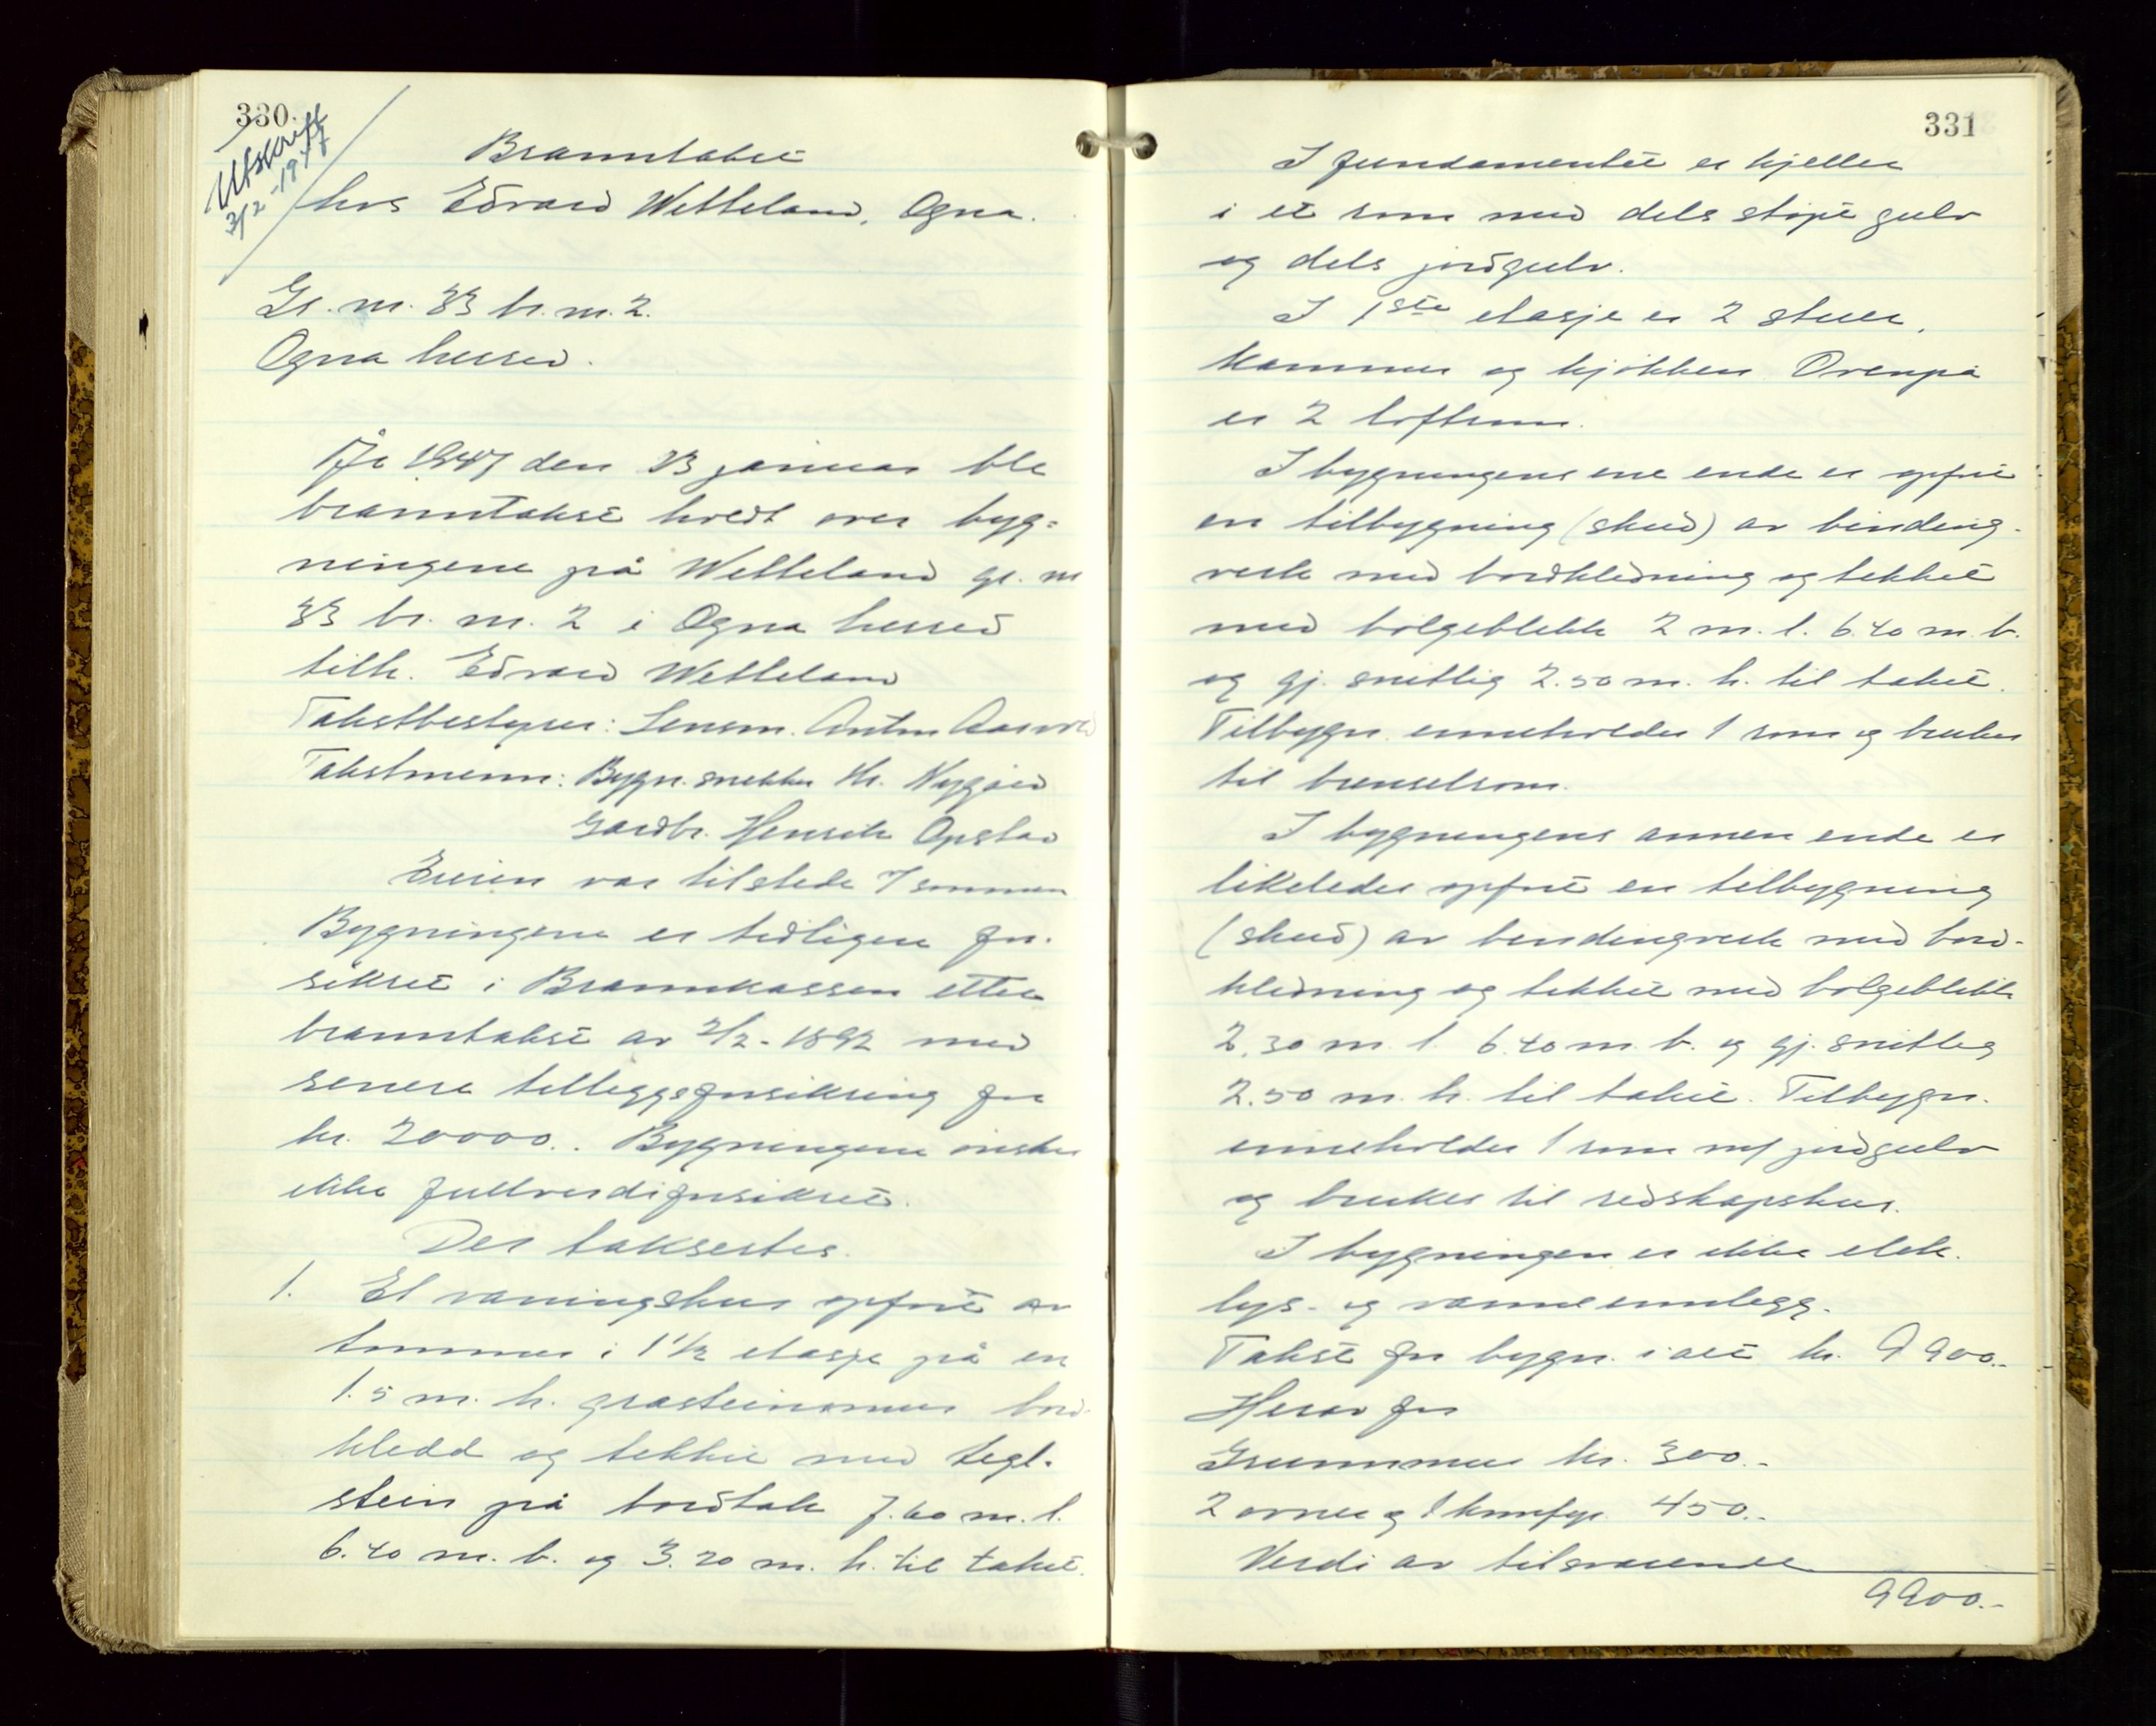 330.
Utskrift
3/2-1947
Branntakst
hos Edvard Wetteland, Ogna.
Gr. nr. 33 br. nr. 2.
Ogna herred.
År 1947 den 23 januar ble
branntakst holdt over byg-
ningene på Wetteland gr. nr
33 br. nr. 2 i Ogna herred
tilh. Edvard Wetteland
Takstbestyrer: Lensm. Anton
Takstmenn: Bygn. snekker Kr. Nygård
Gardbr. Henrik Opstad
Eieren var tilstede
Bygningene er tidligere for-
sikret i Brannkassen etter
branntakst av 2/2-1892 med
senere tilleggsforsikring for
kr. 20000.. Bygningene ønskes
ikke fullverdiforsikret.
Der taksertes.
1. Et våningshus opført av
tømmer i 1 1/2 etasje på en
1.5 m. h. gråsteinsmur bord-
kledd og tekket med tegl-
stein på bordtak 7.60 m. l.
6.40 m. b. og 3.20 m. h. til taket.
331
I fundamentet er kjeller
i et rom med dels støpt gulv
og dels jordgulv.
I 1ste etasje er 2 stuer,
kammer og kjøkken Ovenpå
er 2 loftsrom.
I bygningens ene ende er opført
en tilbygning (skud) av binding-
verk med bordkledning og tekket
med bølgeblikk 2 m. l. 6.40 m. b.
og gj. snittlig 2.50 m. h. til taket.
Tilbygn. inneholder 1 rom og brukes
til brenselrom.
I bygningens annen ende er
likeledes opført en tilbygning
(skud) av bindingverk med bord-
kledning og tekket med bølgeblikk
2.30 m. l. 6.40 m. b. og gj. snittlig
2.50 m. h. til taket. Tilbygn.
inneholder 1 rom m/ jordgulv
og brukes til redskapshus.
I bygningen er ikke elek.
lys- og vanninnlegg.
Takst for bygn. i alt kr. 9900.-
Herav for
Grunnmur kr. 300.-
2 ovner og 1 komfyr 450.-
Verdi av tilsvarende
9900.-